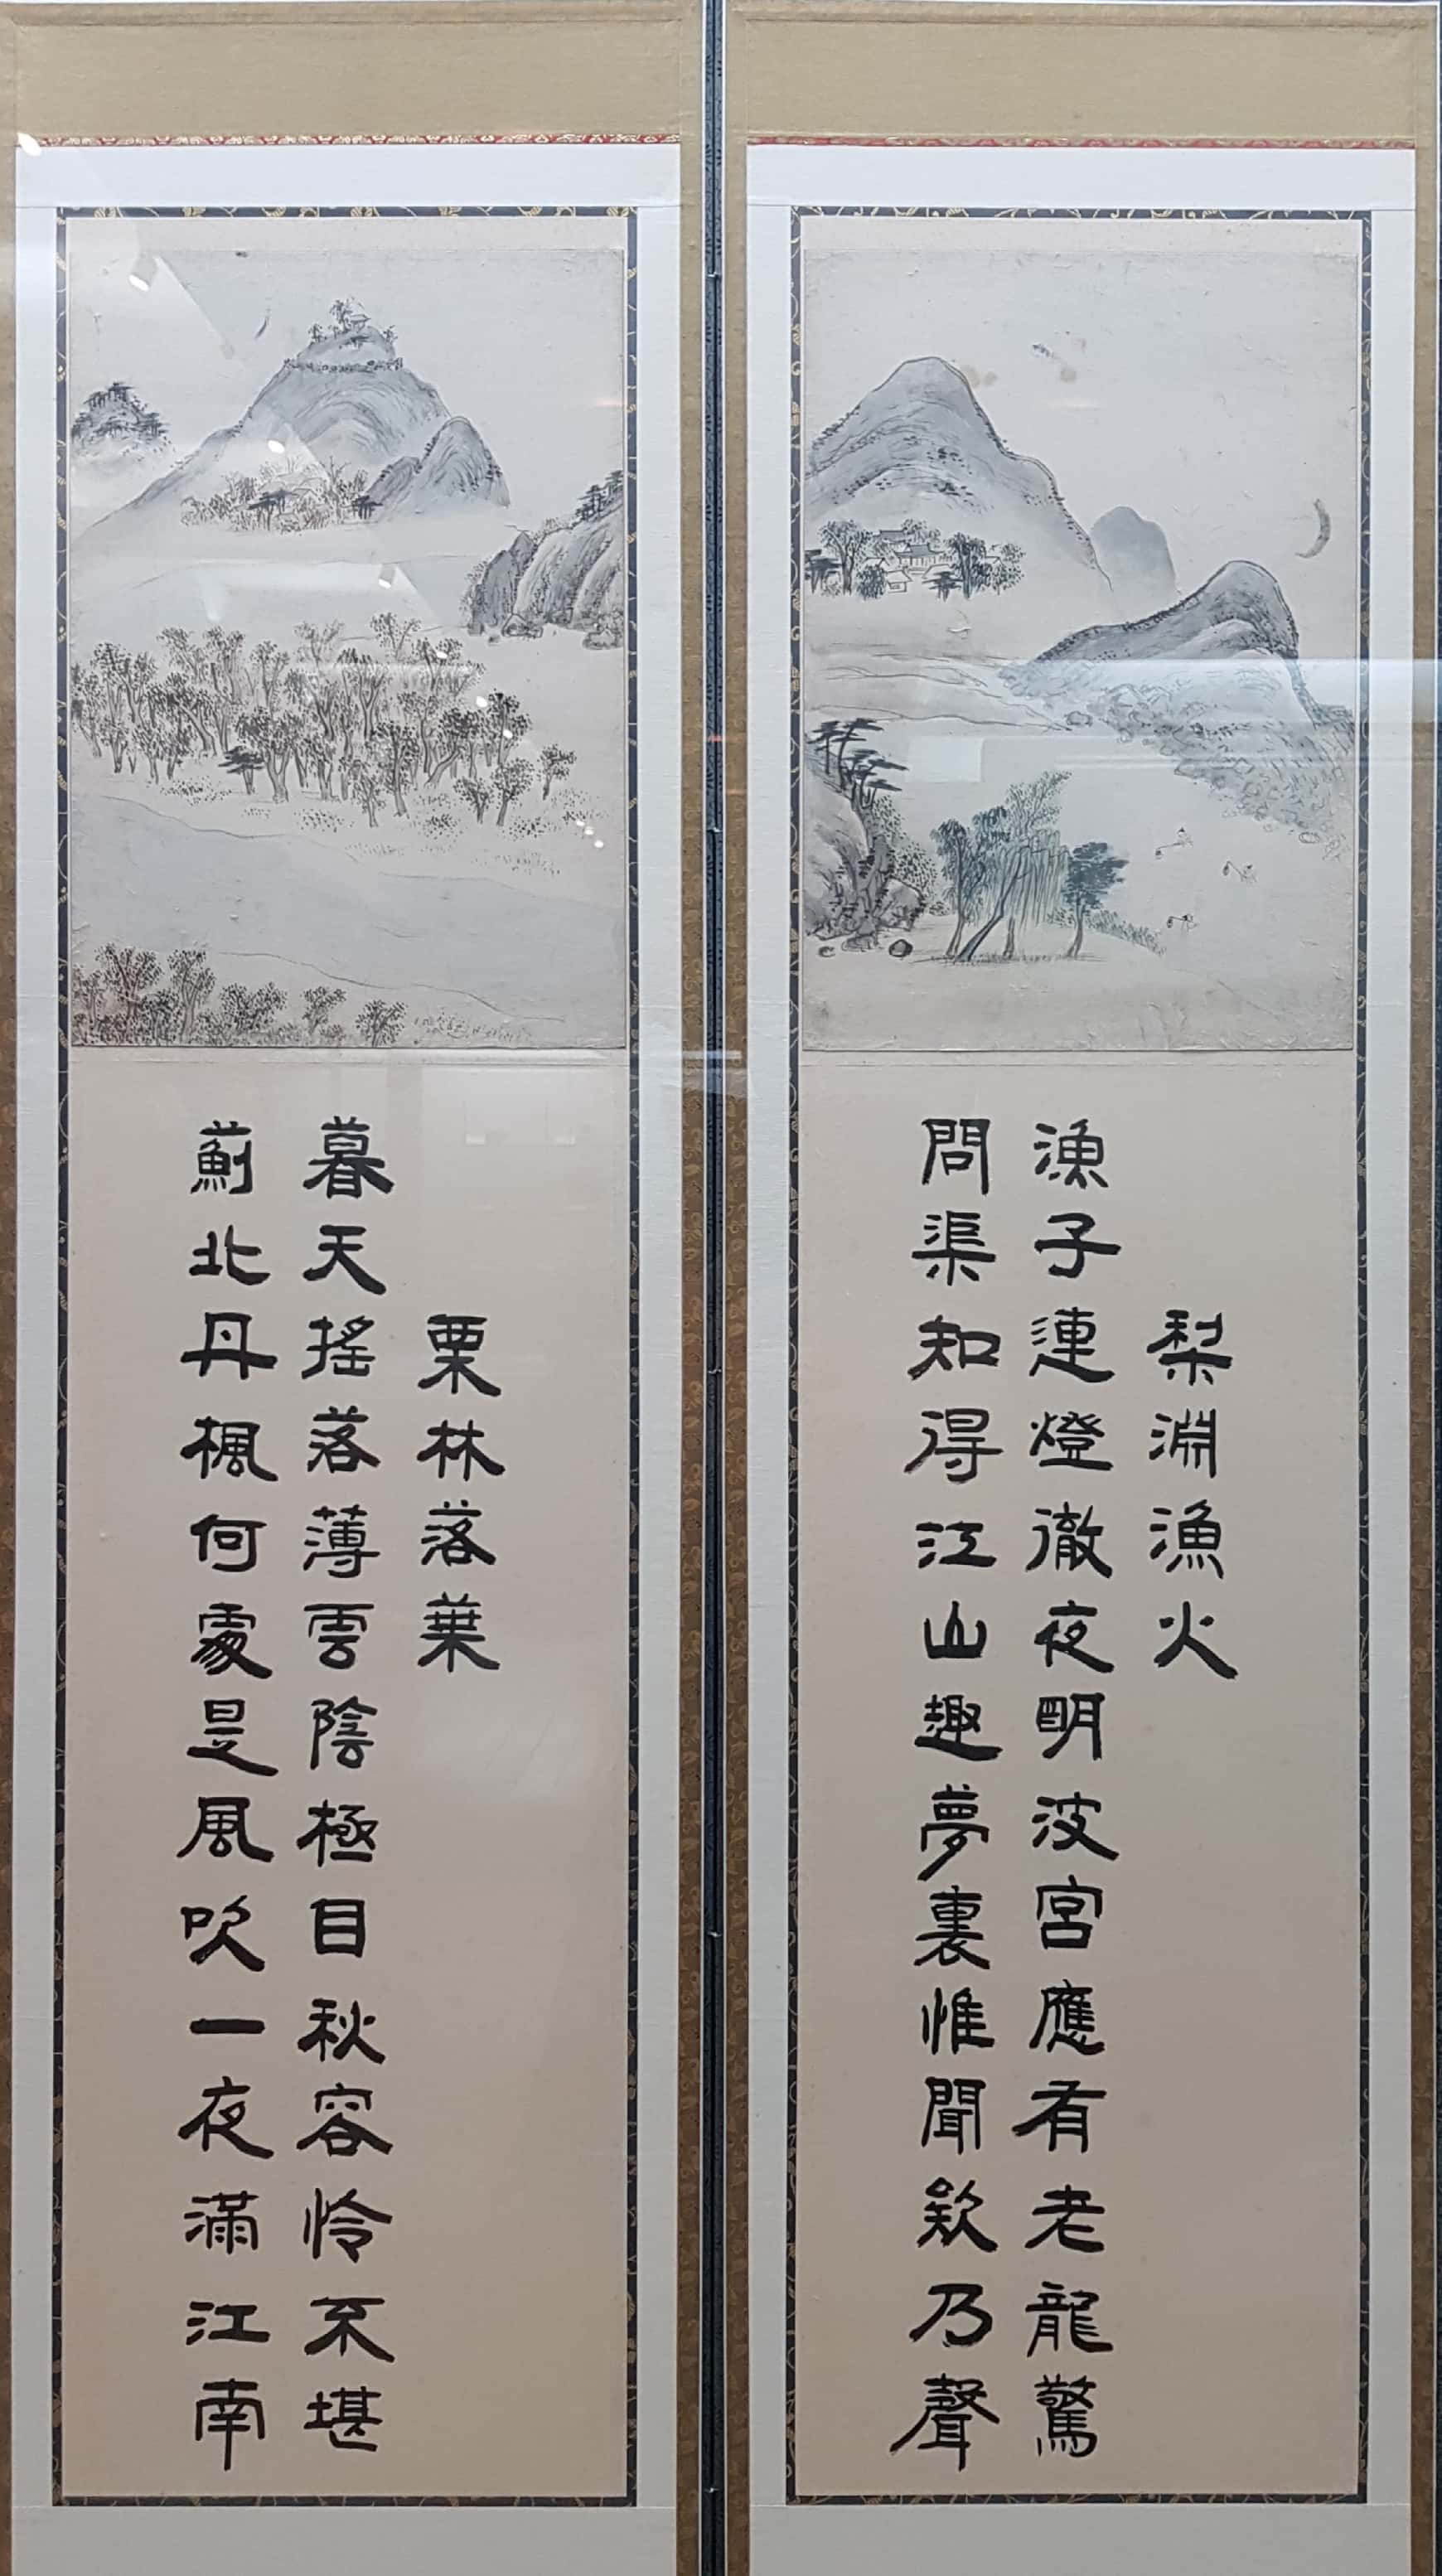 梨淵漁火
漁子連燈徹夜明波宮應有老龍驚
問渠知得江山趣夢裏惟聞欸乃聲
栗林落葉
暮天搖落薄雲陰極目秋容怜不堪
薊北丹楓何處是風吹一夜滿江南